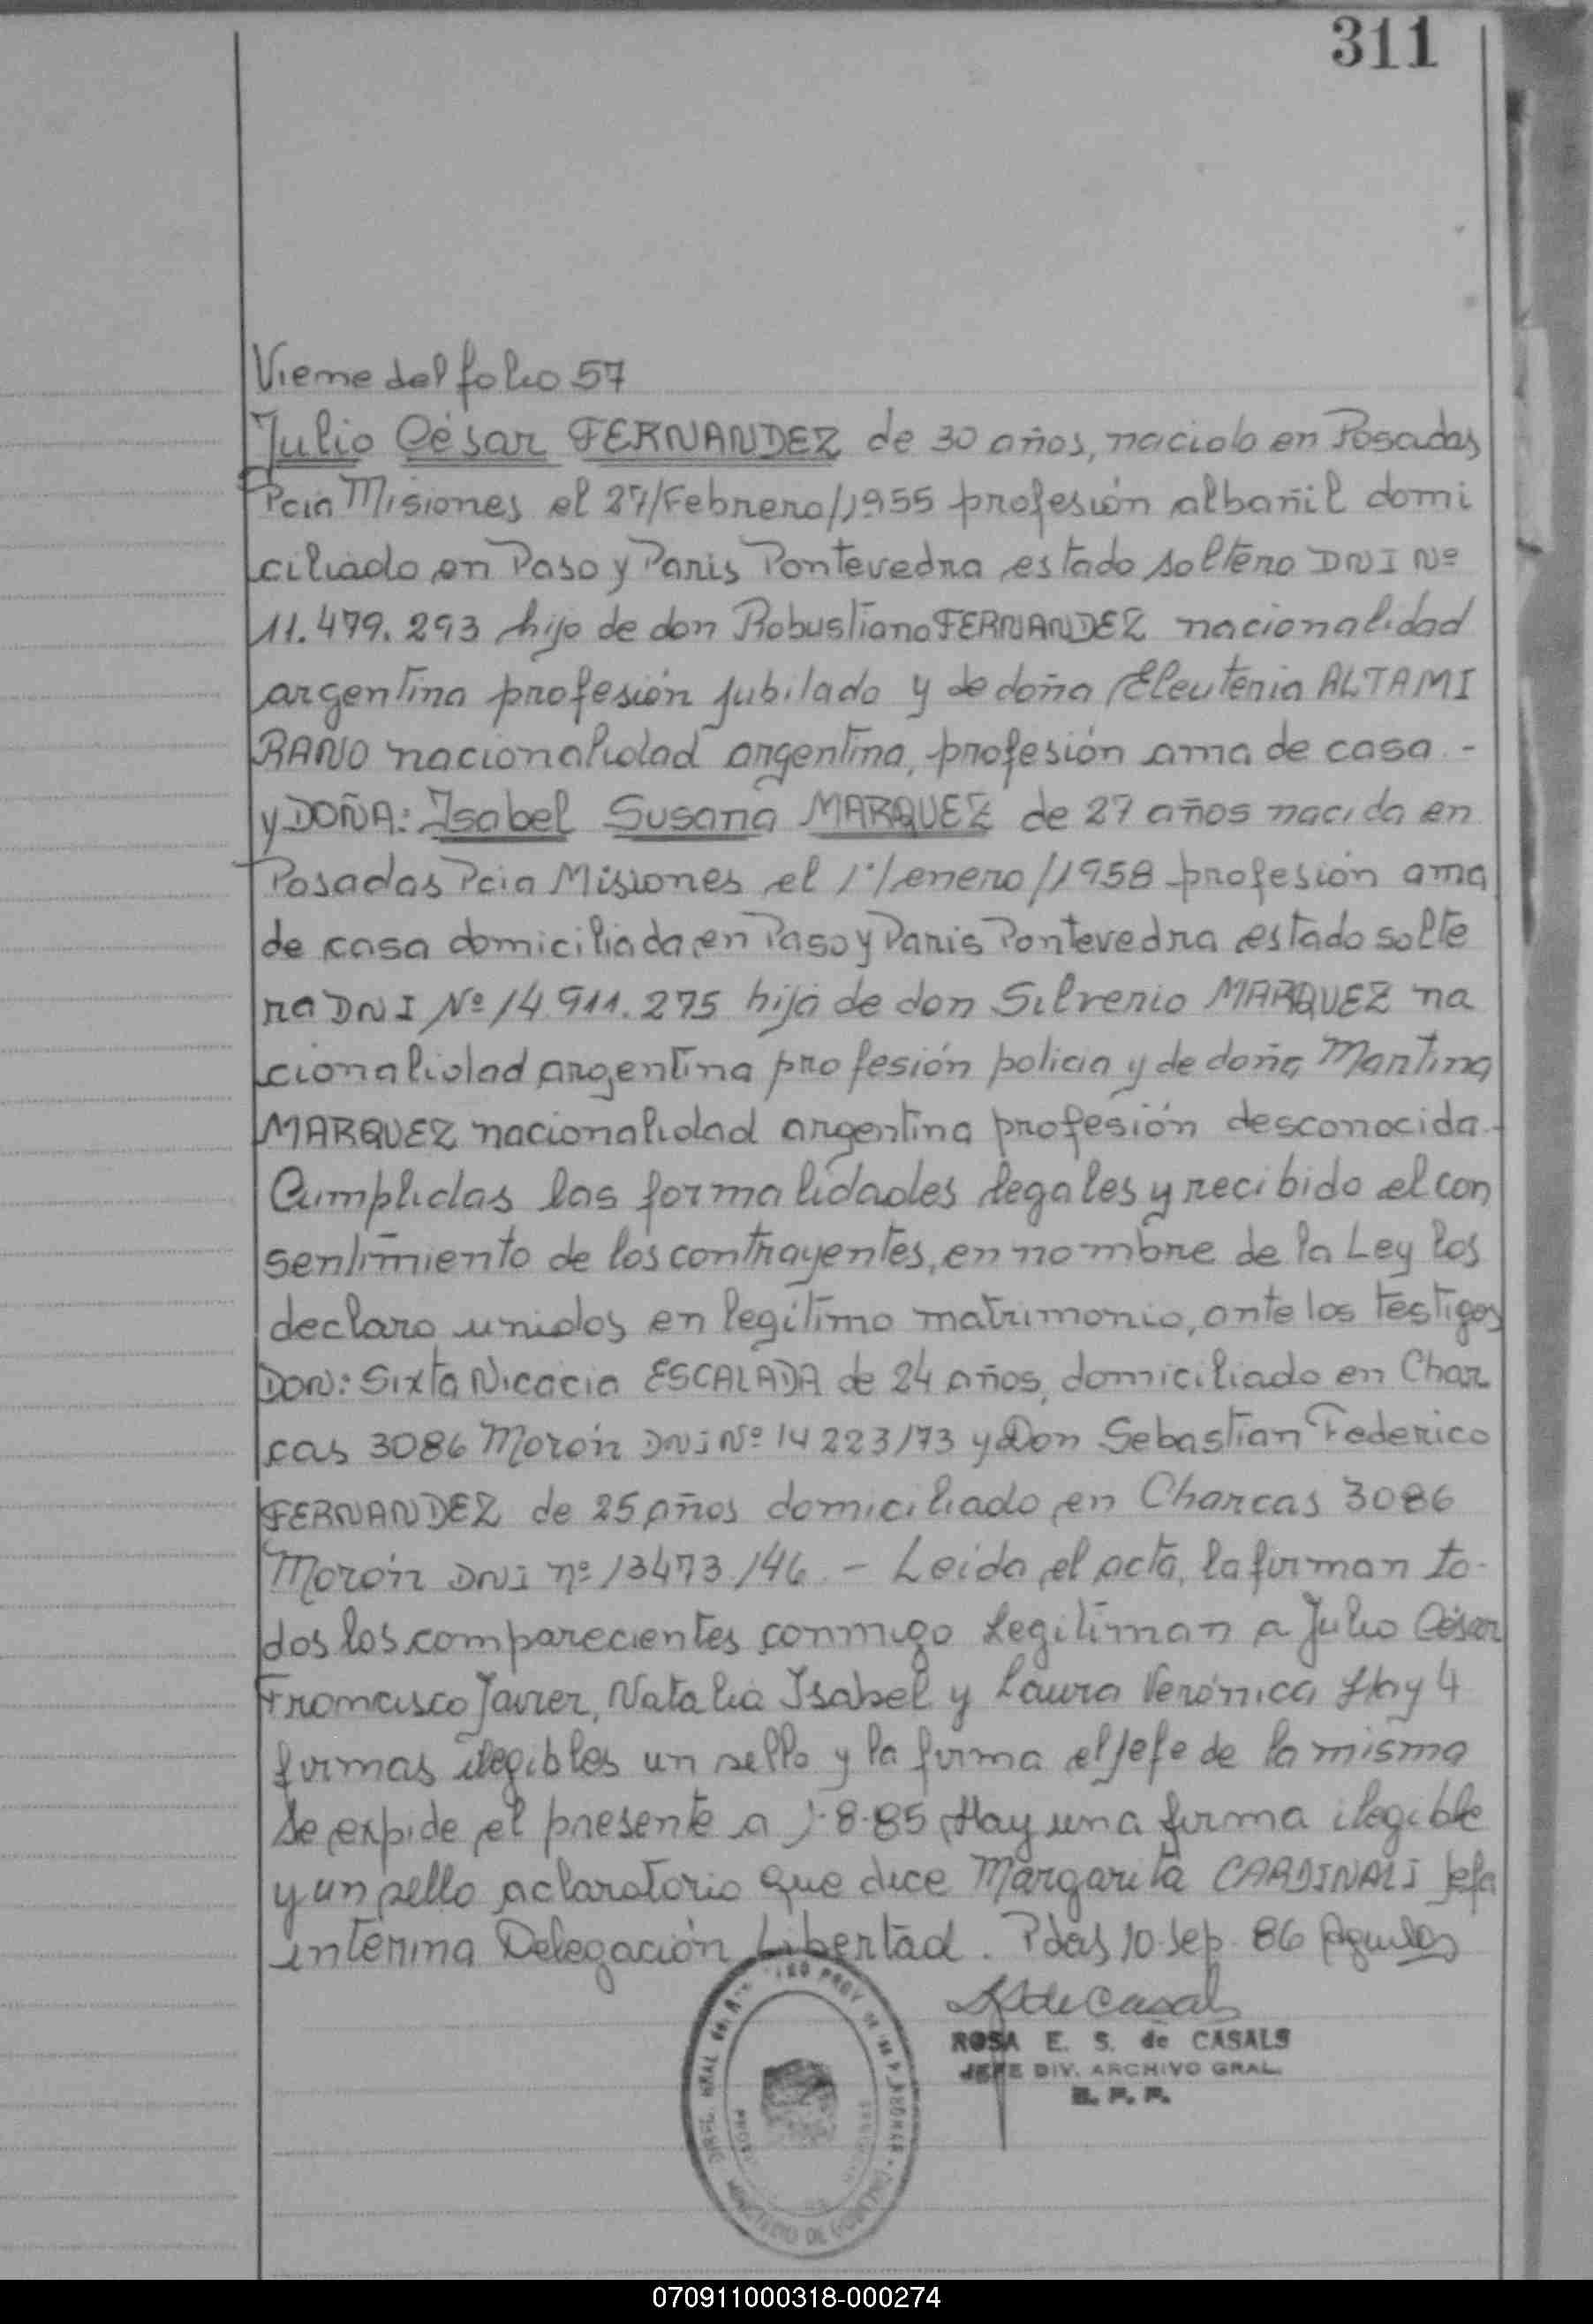 311
Viene del folio 57
Julio César FERNANDEZ de 30 años, nacido en Posadas
Pcia Misiones el 27/Febrero/1955 profesión albañil domi
ciliado en Paso y Paris Pontevedra estado soltero DNI Nº
11.479.293 hijo de don Robustiano FERNANDEZ nacionalidad
argentina profesión jubilado y de doña Eleuteria ALTAMI
RANO nacionalidad argentina, profesión ama de casa.-
y DOÑA: Isabel Susana MARQUEZ de 27 años nacida en
Posadas Pcia Misiones el 1º/enero/1958 profesión ama
de casa domiciliada en Paso y Paris Pontevedra estado solte
ra DNI Nº 14.911.275 hija de don Silverio MARQUEZ na
cionalidad argentina profesión policia y de doña Martina
MARQUEZ nacionalidad argentina profesión desconocida.-
Cumplidas las formalidades legales y recibido el con
sentimiento de los contrayentes, en nombre de la Ley los
declaro unidos en legítimo matrimonio, ante los testigos
DON: Sixta Nicacia ESCALADA de 24 años, domiciliado en Char
cas 3086 Morón DNI Nº 14223173 y Don Sebastian Federico
FERNANDEZ de 25 años domiciliado en Charcas 3086
Morón DNI nº 13473146.- Leida el acta, la firman to-
dos los comparecientes conmigo Legitiman a Julio César
Francisco Javier, Natalia Isabel y Laura Verónica Hay 4
firmas ilegibles un sello y la firma el jefe de la misma
Se expide el presente a 1-8-85 Hay una firma ilegible
y un sello aclaratorio que dice Margarita CARDINALI Jefa
interina Delegación Libertad. Pdas 10-Sep-86
de Casals
ROSA E. S. de CASALS
JEFE DIV. ARCHIVO GRAL.
R. P. P.
MINISTERIO DE GOBIERNO
070911000318-000274